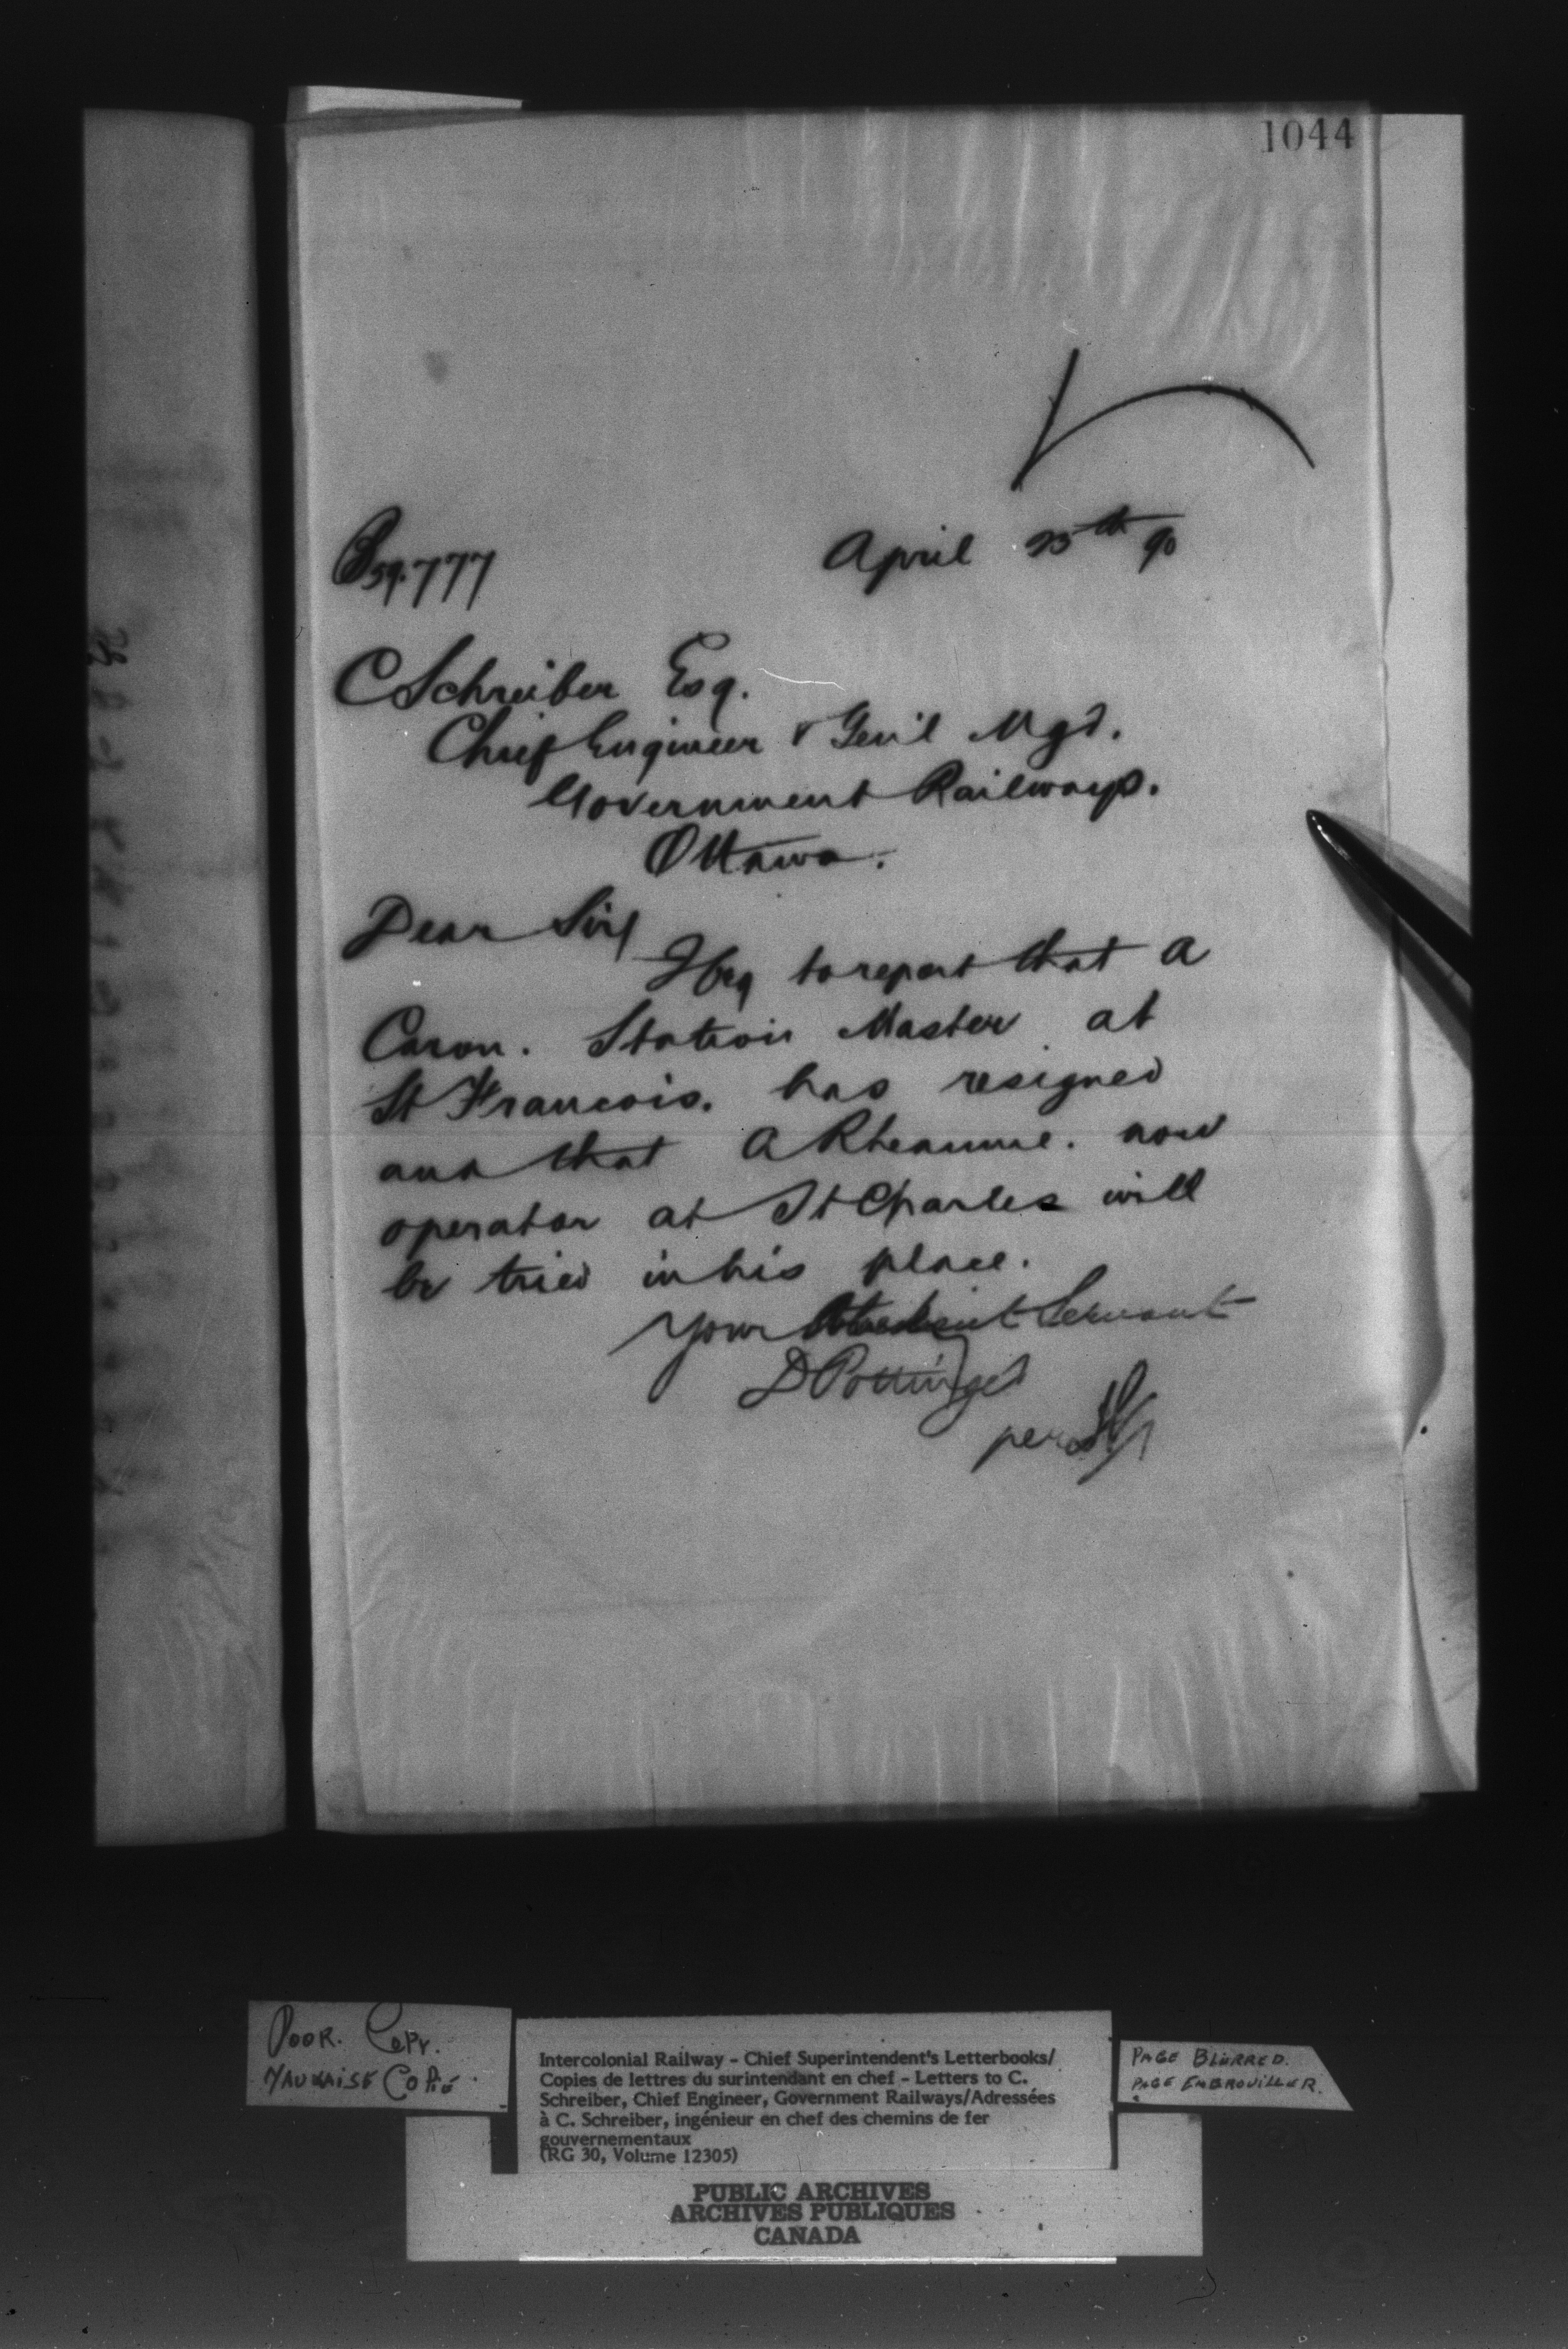 1044
59.777
April 25th 90
C Schreiber Esq.
Chief Engineer & Gen'l Mgr.
Government Railways.
Ottawa.
Dear Sir
I beg to report that A
Caron. Station Master at
St Francois. has resigned
and that A Rheaume. now
operator at St Charles will
be tried in his place.
Your Obedient Servant
D Pottinger
per
POOR. COPY.
MAUVAISE COPIE
Intercolonial Railway - Chief Superintendent's Letterbooks/
Copies de lettres du surintendant en chef - Letters to C.
Schreiber, Chief Engineer, Government Railways/Adressées
à C. Schreiber, ingénieur en chef des chemins de fer
gouvernementaux
(RG 30, Volume 12305)
PAGE BLURRED.
PAGE EMBROUILLER.
PUBLIC ARCHIVES
ARCHIVES PUBLIQUES
CANADA